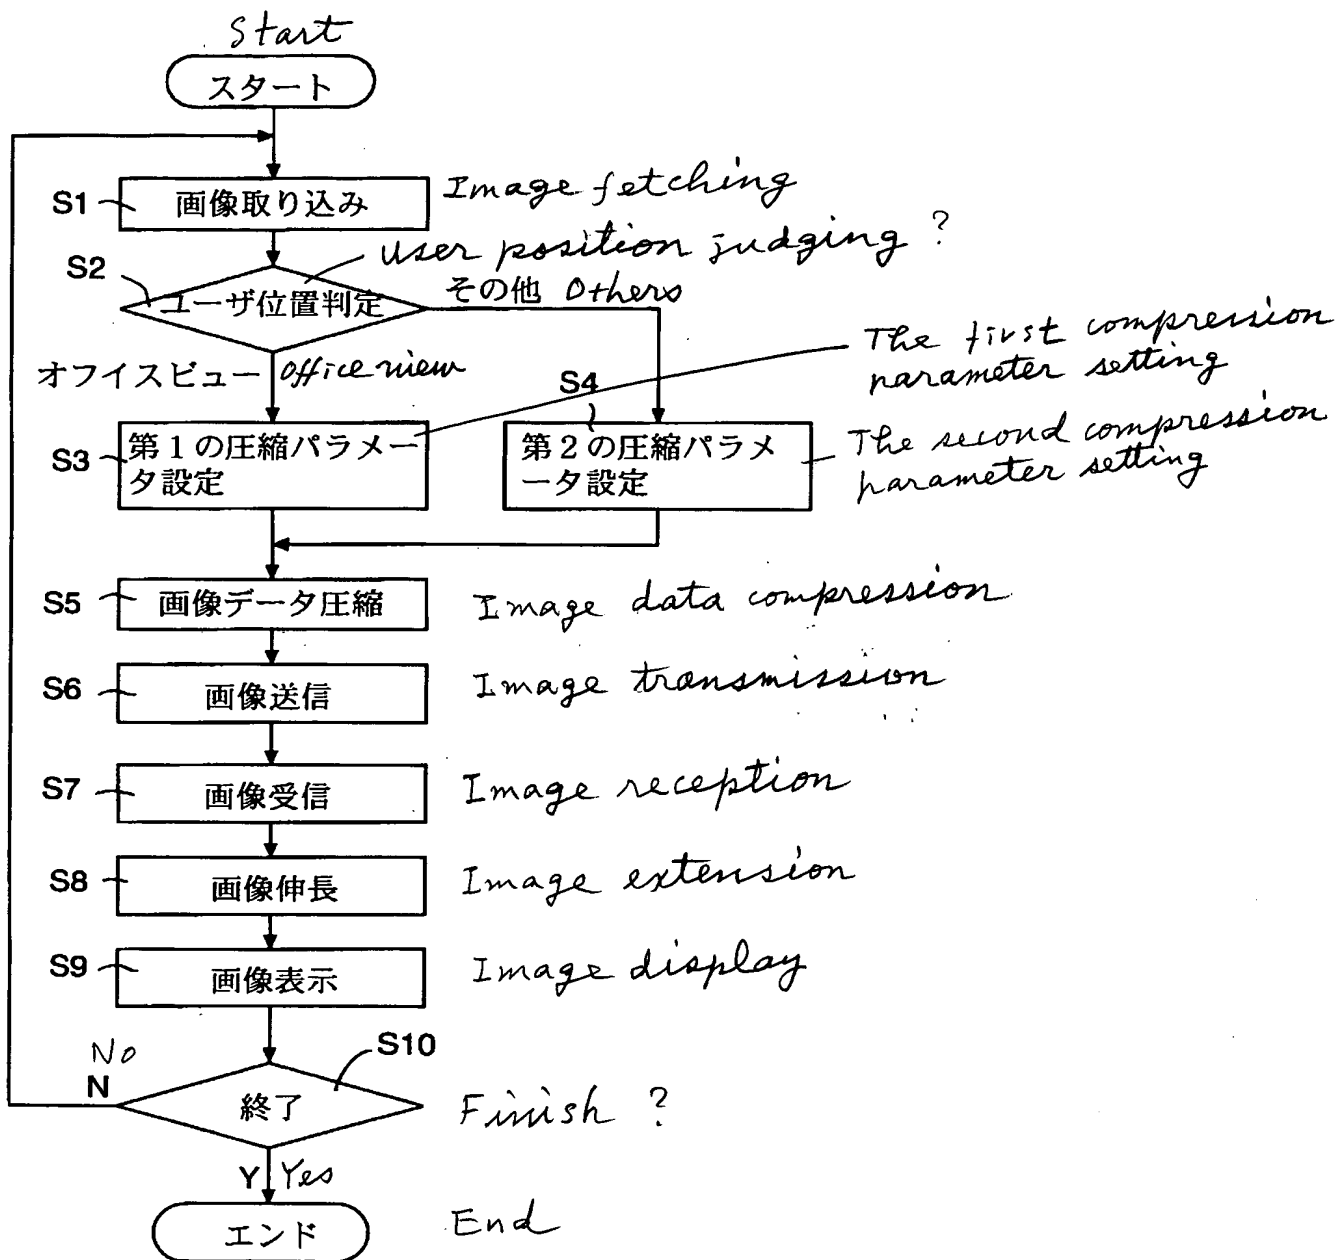 Start
スタート
S1
画像取り込み
Image fetching
S2
User position judging ?
ユーザ位置判定
その他 Others
オフイスビュー office view
S3
第1の圧縮パラメー
タ設定
The first compression
parameter setting
S4
第2の圧縮パラメ
ータ設定
The second compression
parameter setting
S5
画像データ圧縮
Image data compression
S6
画像送信
Image transmission
S7
画像受信
Image reception
S8
画像伸長
Image extension
S9
画像表示
Image display
S10
No
N
終了
Finish ?
Y Yes
エンド
End